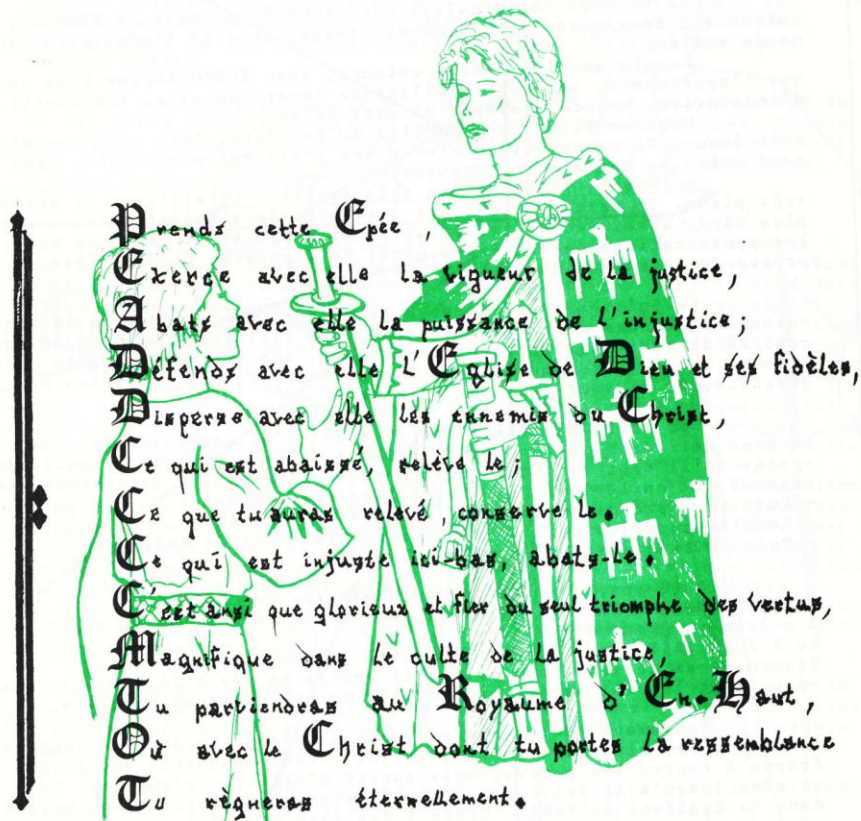 Prends cette Epée,
Exerce avec elle la vigueur de la justice,
Abats avec elle la puissance de l'injustice;
Défends avec elle l'Eglise de Dieu et ses fidèles,
Disperse avec elle les ennemis du Christ,
Ce qui est abaissé, relève le;
Ce que tu auras relevé, conserve le.
Ce qui est injuste ici-bas, abats-le.
C'est ansi que glorieux et fier du seul triomphe des vertus,
Magnifique dans le culte de la justice,
Tu parviendras au Royaume d'En-Haut,
Où avec le Christ dont tu portes la ressemblance
Tu règneras éternellement.